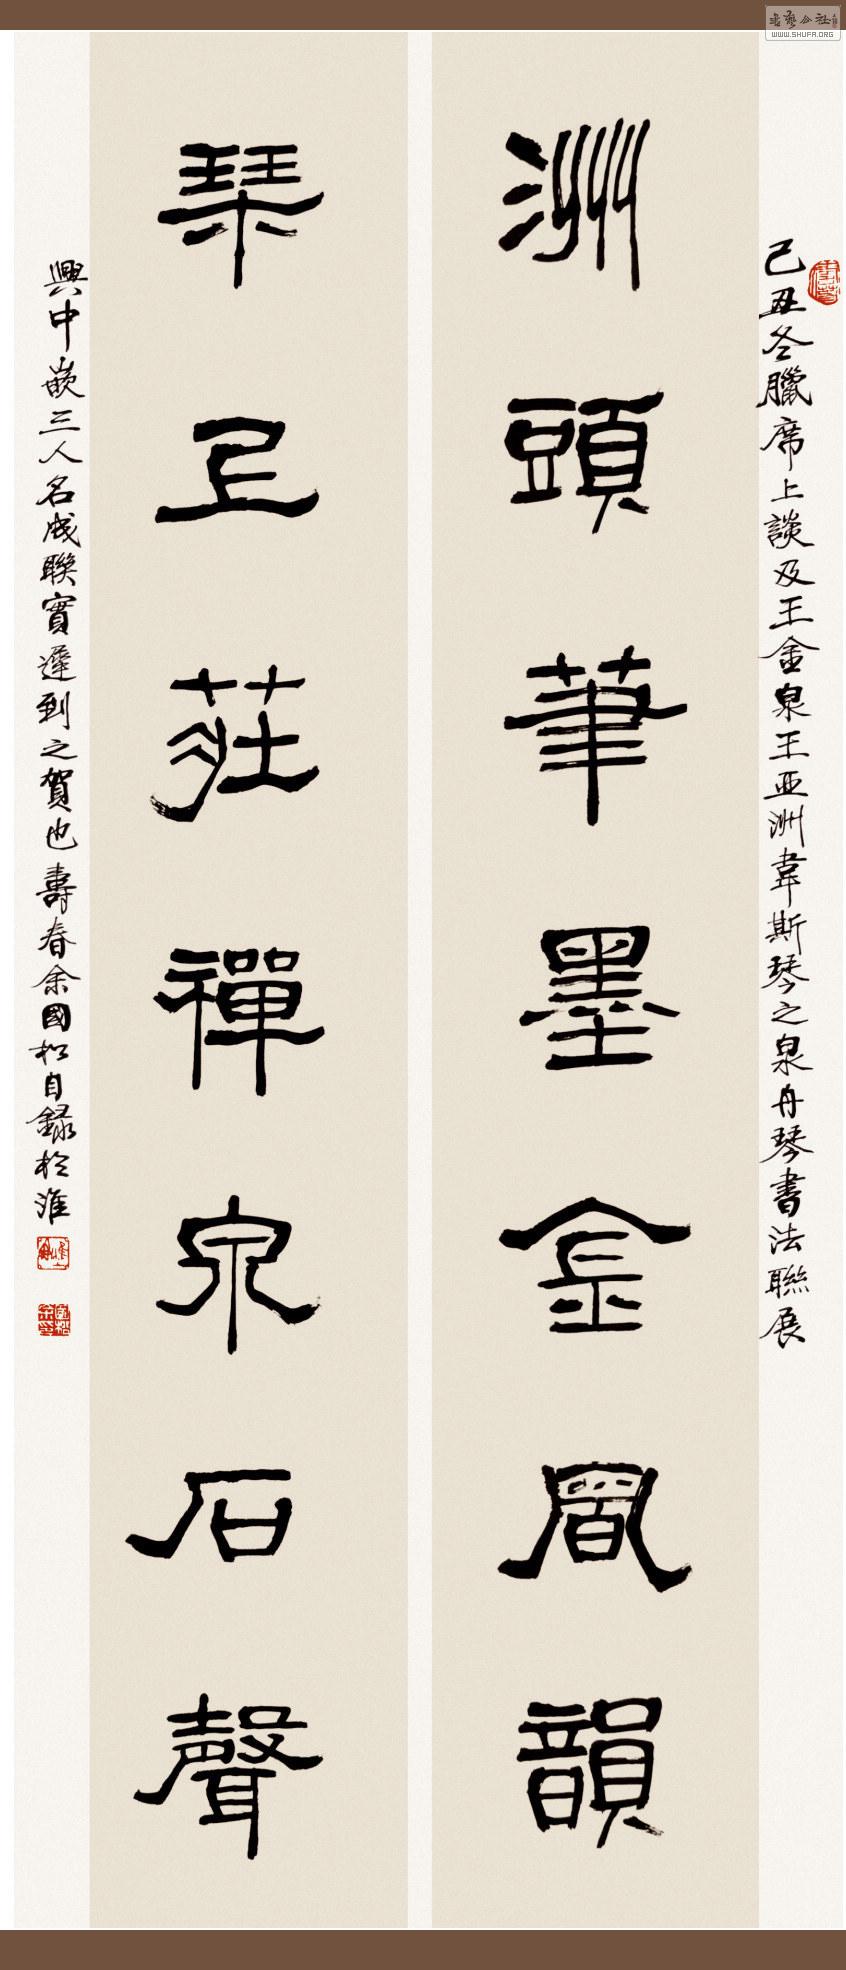 己丑冬臘席上談及王金泉王亞洲韋斯琴之泉舟琴書法聯展
洲頭筆墨金韻
琹莊禪泉石聲
興中嵌三人名成聯實遲到之賀也壽春余國松自録於淮
WWW.SHUFA.ORG